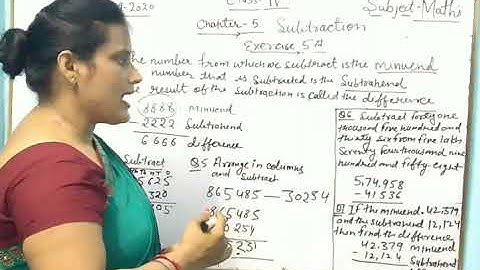 -2020
Class-IV
Subject-Maths
Chapter-5 Subtraction
Exercise 5A
he number from which we subtract is the minuend
number that is subtracted is the Subtrahend
result of the subtraction is called the difference
8888 minuend
2222 Subtrahend
6666 difference
Subtract
5625
320
Q5 Arrange in columns
and Subtract
865485 — 30254
865485
Q6 Subtract forty one
thousand five hundred and
thirty six from five lakh
Seventy four thousand nine
hundred and fifty-eight
5,74,958
- 41536
Q7 If the minuend. 42,379
and the subtrahend 12,124
then find the difference
42,379 minuend
- 12,124 Subtrahend